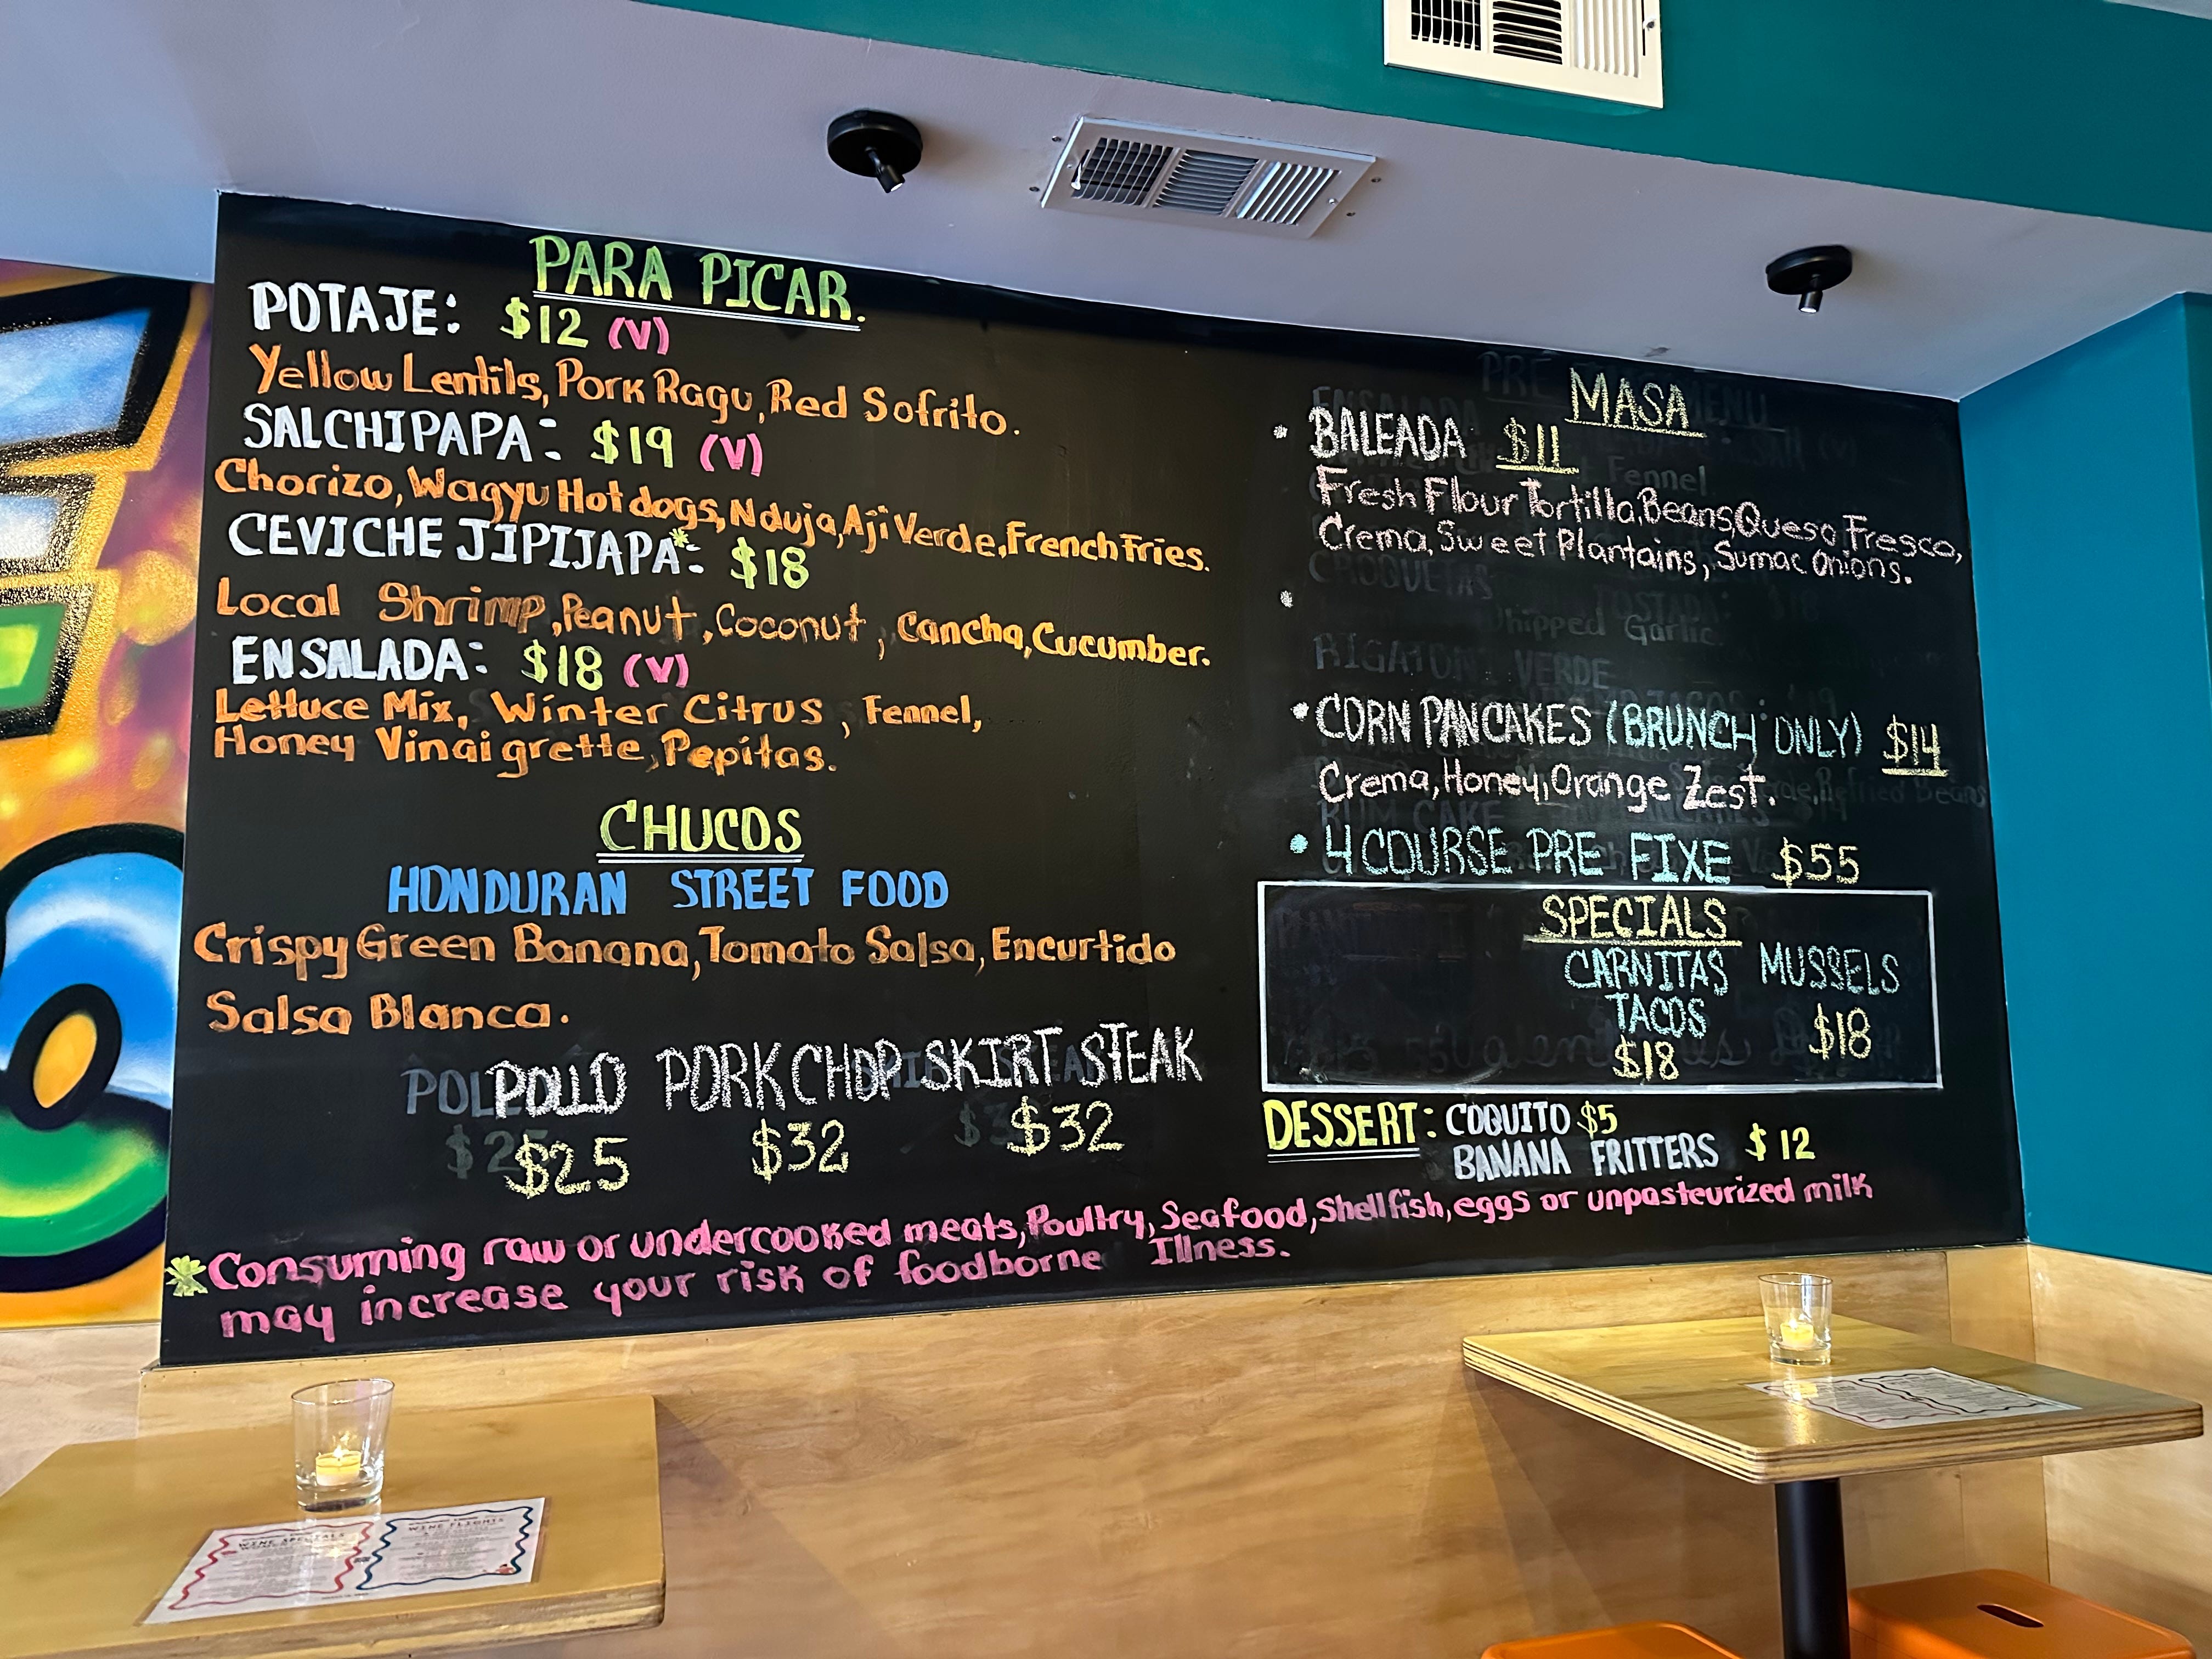 PARA PICAR.
POTAJE: $12 (V)
Yellow Lentils, Pork Ragu, Red Sofrito.
SALCHIPAPA: $19 (V)
Chorizo, Wagyu Hot dogs, Nduja, Aji Verde, French Fries.
CEVICHE JIPIJAPA*: $18
Local Shrimp, Peanut, Coconut, Cancha, Cucumber.
ENSALADA: $18 (V)
Lettuce Mix, Winter Citrus, Fennel,
Honey Vinaigrette, Pepitas.
CHUCOS
HONDURAN STREET FOOD
Crispy Green Banana, Tomato Salsa, Encurtido
Salsa Blanca.
POLLO PORK CHOP SKIRT STEAK
$25 $32 $32
MASA
• BALEADA $11
Fresh Flour Tortilla, Beans, Queso Fresco,
Crema, Sweet Plantains, Sumac Onions.
•
• CORN PANCAKES (BRUNCH ONLY) $14
Crema, Honey, Orange Zest.
• 4 COURSE PRE FIXE $55
SPECIALS
CARNITAS MUSSELS
TACOS $18
$18
DESSERT: COQUITO $5
BANANA FRITTERS $12
* Consuming raw or undercooked meats, Poultry, Seafood, Shellfish, eggs or unpasteurized milk
may increase your risk of foodborne Illness.
WINE SPECIALS
WINE FLIGHTS